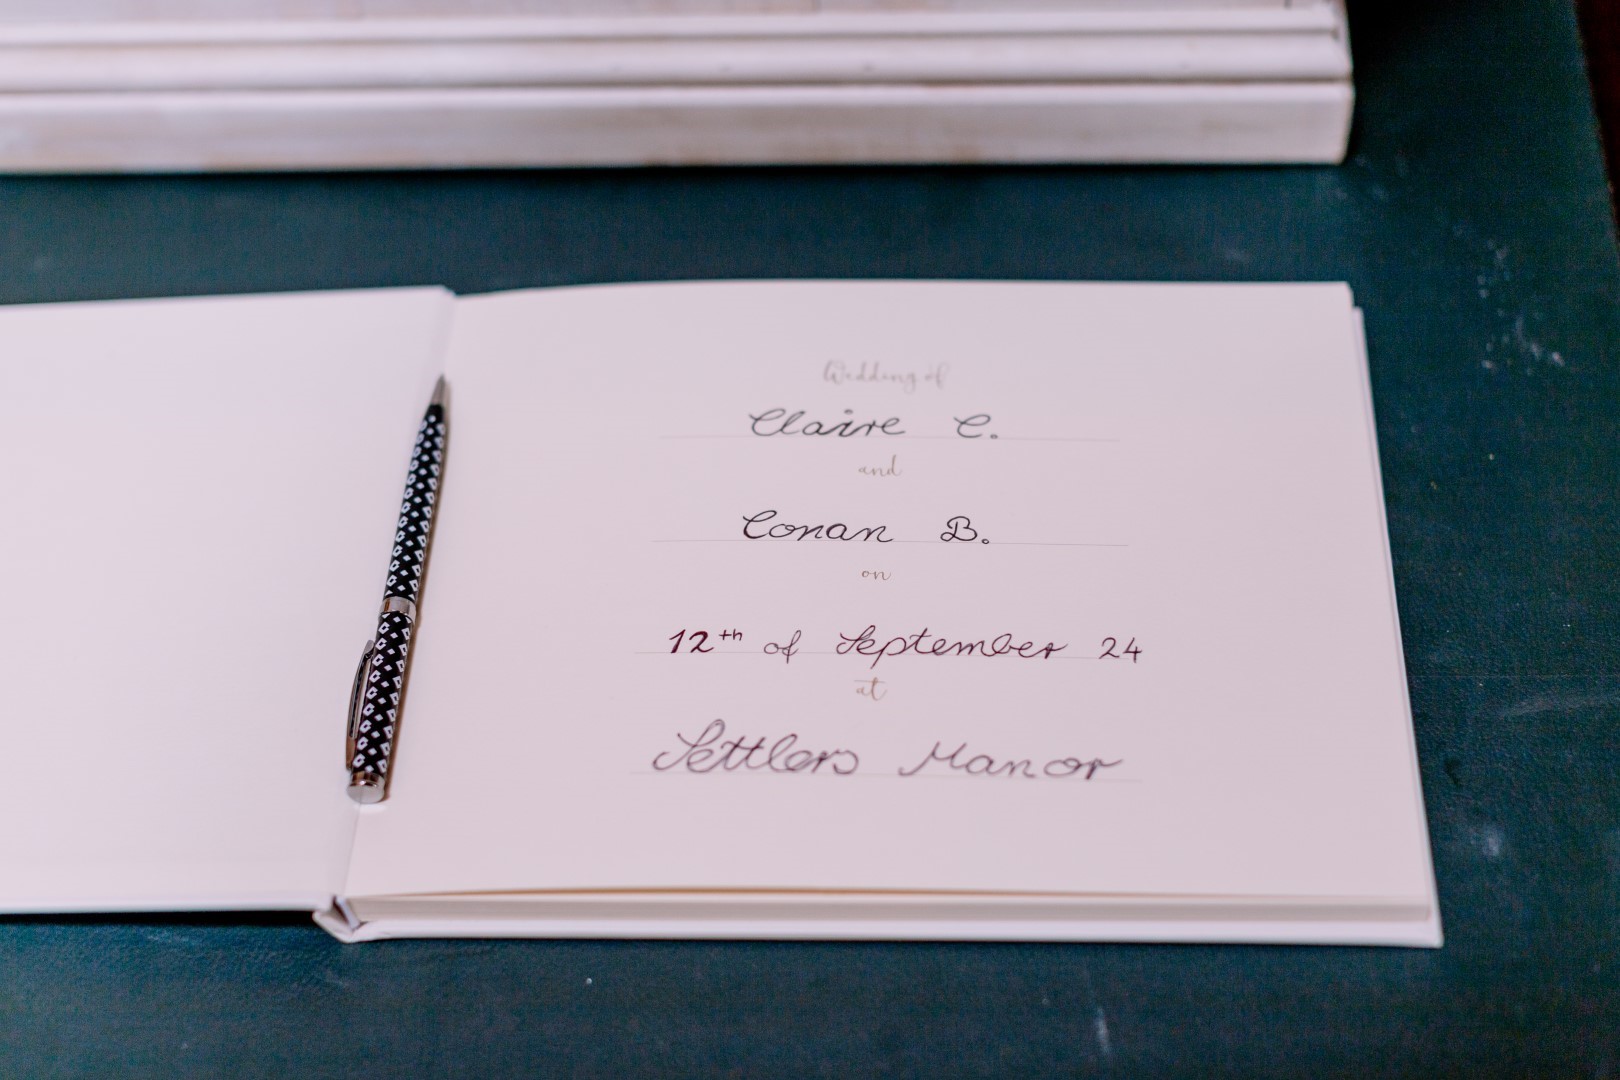 Wedding of
Claire C.
and
Conan B.
on
12th of September 24
at
Settlers Manor